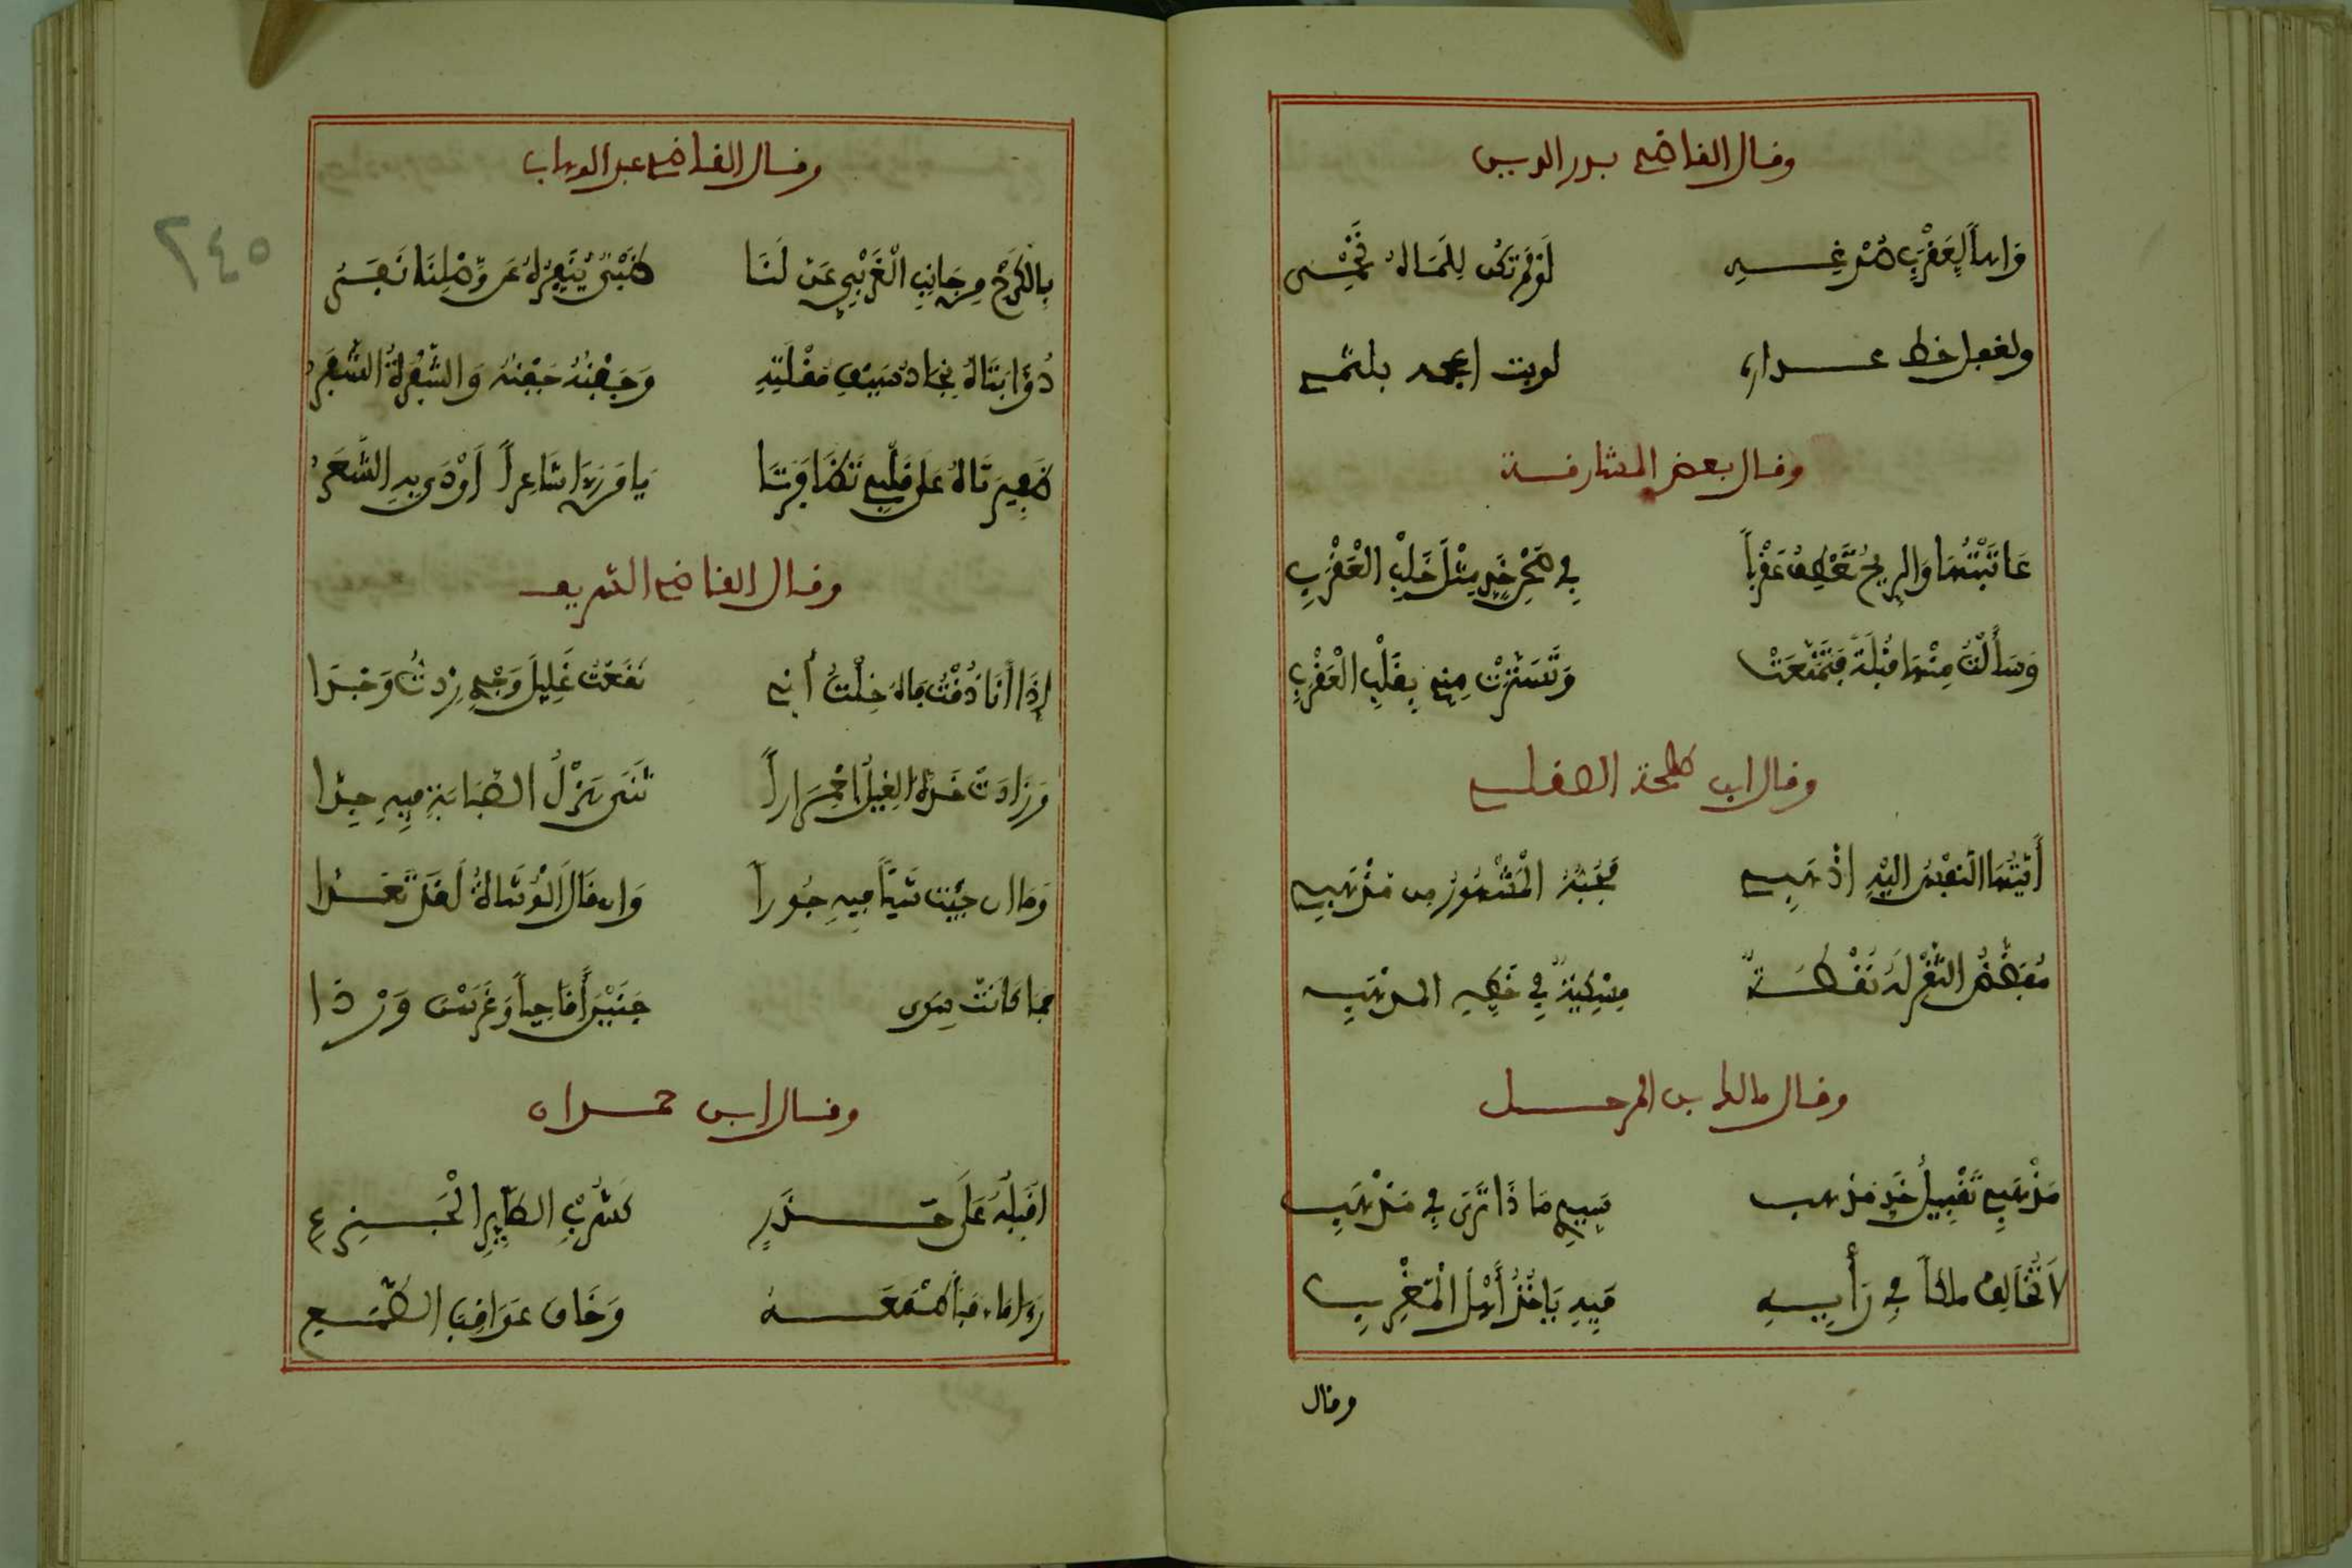 وقال القاضي بدر الدين
واها لعقرب صدغه لو لم تكن للماه تحمى
ولغفل خط عذاره لو بت اعجمه بلثمي
وقال بعض المشارقة
عَاتَبْتُهَا وَالرِيحُ تَعْطِفُ عَقْرَباً فِي صَحْنِ خَدٍّ مِثْلَ خَلْبِ الْعَقْرَبِ
وَسَأَلْتُ مِنْهَا قُبْلَةً فَتَمَنَّعَتْ وَتَسَتَّرَتْ مِنِّي بِقَلْبِ الْعَقْرَبِ
وقال ابن طلحة الصقلي
أَيَّتُهَا النَفْسُ اليْهِ اذْهَبِي فَحُبُّهُ الْمَشْهُورُ من مَذْهَبِي
مُفَضَّضُ الثَغْرِ لَهُ نُقْطَةٌ مِسْكِيَّةٌ فِي خَدِّهِ المذْهَبِ
وقال مالك بن المرحل
مَذْهَبِي تَقْبِيلُ خَدٍّ مذهب سَيِّدِي مَا ذَا تَرَى فِي مَذْهَبِي
لاَ تُخَالِفْ مالكاً فِي رَأْيِهِ فَبِهِ يَأخُذُ أَهْلُ الْمَغْرِبِ
وقال
٢٤٥
وقال القاضي عبد الوهاب
بِالْكَرْخِ مِن جَانِبِ الْغَرْبِيِّ عَنَّ لَنَا ظَبْيٌ يُنَفِّرُهُ عَن وَصْلِنَا نَفَرُ
ذُؤَابَتَاهُ نِجَادُ سَيْفِ مُقْلَتِهِ وَجَفْنُهُ جَفْنُهُ وَالشَّفْرَةُ الشَّفَرُ
ضَفِيرَتَاهُ عَلَى قَلْبِي تَضَافَرَتَا يَا مَن رَأَى شَاعِراً أَوْدَى بِهِ الشَّعَرُ
وقال القاضي الشريف
إِذَا أَنَا ذُقْتُ فاهُ خِلْتُ أنِّي نَقَعْتُ غَلِيلَ وَجْدٍ زِدتُّ وَجْدَا
وَزَادَتْ خَدَّهُ القِبَلُ احْمِرَاراً ثَنَى هَزْلُ الصَبَابَةِ فِيهِ جِدَّا
وَمَا ان جِئْت شَيْأً فِيهِ جُوراً وَان قَالَ الْوُشَاةُ لَقَدْ تَعَدَّا
فما كانَتْ سِوَى جَنَيْنَ أَقَاحِياً وَغَرَسْنَ وَرْدَا
وقال ابن حمدان
اقَبِّلُهُ عَلَى حَذَرٍ كَشُرْبِ الطَّائِرِ الْجَزِعِ
رَءا مَاء فأَطْمَعَهُ وَخَافَ عَوَاقِبَ الطَّمَعِ